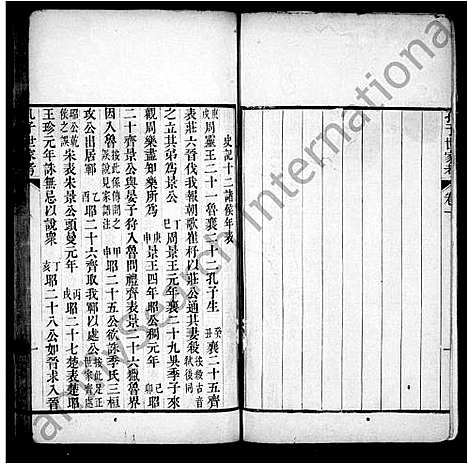 孔子世家考 卷一
史記十二諸侯年表
庚戌 周靈王二十一魯襄二十二孔子生 癸丑 襄二十五齊
表莊六晉伐我報朝歌崔杼以莊公通其妻殺 
之立其弟爲景公 丁巳 周景王元年襄二十九吳季子來
觀周樂盡知樂所爲 庚申 景王四年昭公稠元年 己卯 昭
二十齊景公與晏子狩入魯問禮齊表景二十六獵魯界
因入魯 甲申 昭二十五公欲誅季氏三桓
攻公出居鄆 乙酉 昭二十六齊取我鄆以處公
朱表朱景公頭曼元年 丙戌 昭二十七楚表楚昭
王珍元年誅無忌以說衆 丁亥 昭二十八公如晉求入晉
孔子世家考
Ancestry Search International